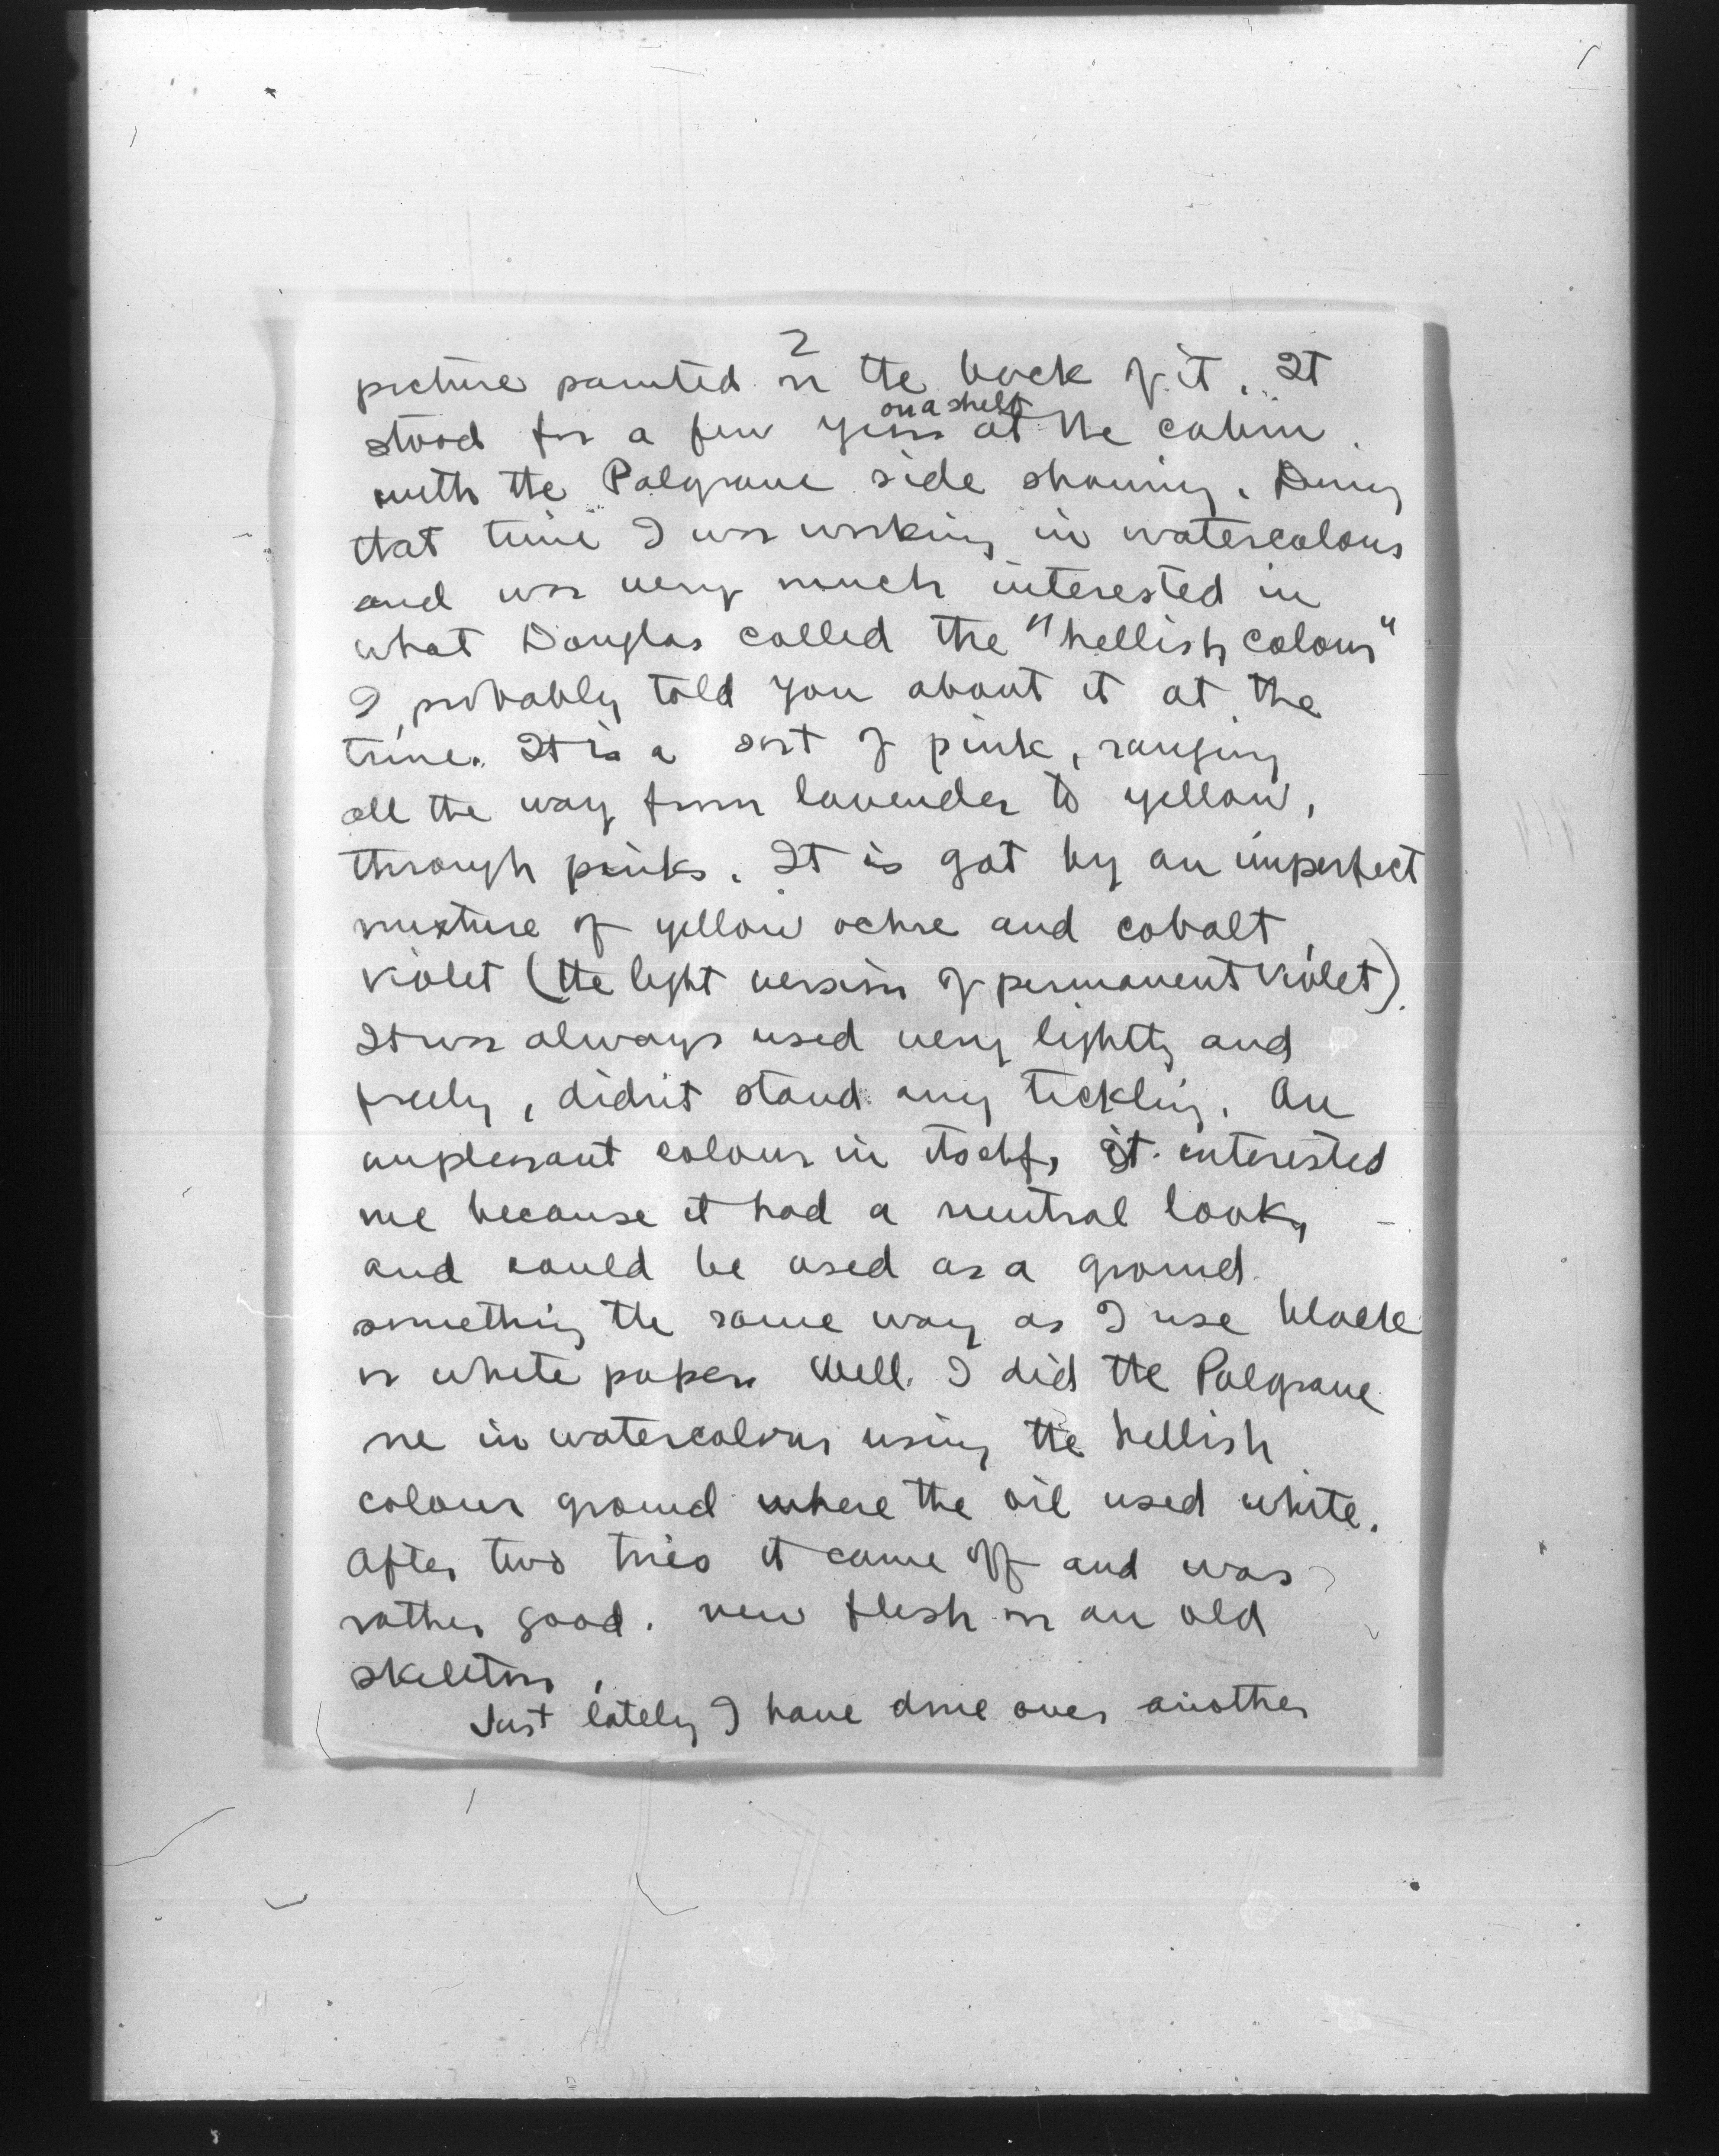 2
picture painted on the back of it. It
on a shelf
stood for a few years at the cabin
with the Palgrave side showing. During
that time I was working in watercolour
and was very much interested in
what Douglas called the "hellish colour"
I probably told you about it at the
time. It is a sort of pink, ranging
all the way from lavender to yellow,
through pinks. It is got by an imperfect
mixture of yellow ochre and cobalt
violet (the light version of permanent violet).
It was always used very lightly and
freely, didn't stand any tickling. An
unpleasant colour in itself, it interested
me because it had a neutral look,
and could be used as a ground
something the same way as I use black
or white paper. Well. I did the Palgrave
one in watercolour using the hellish
colour ground where the oil used white.
After two tries it came off and was
rather good. new flesh on an old
skeleton.
Just lately I have done over another